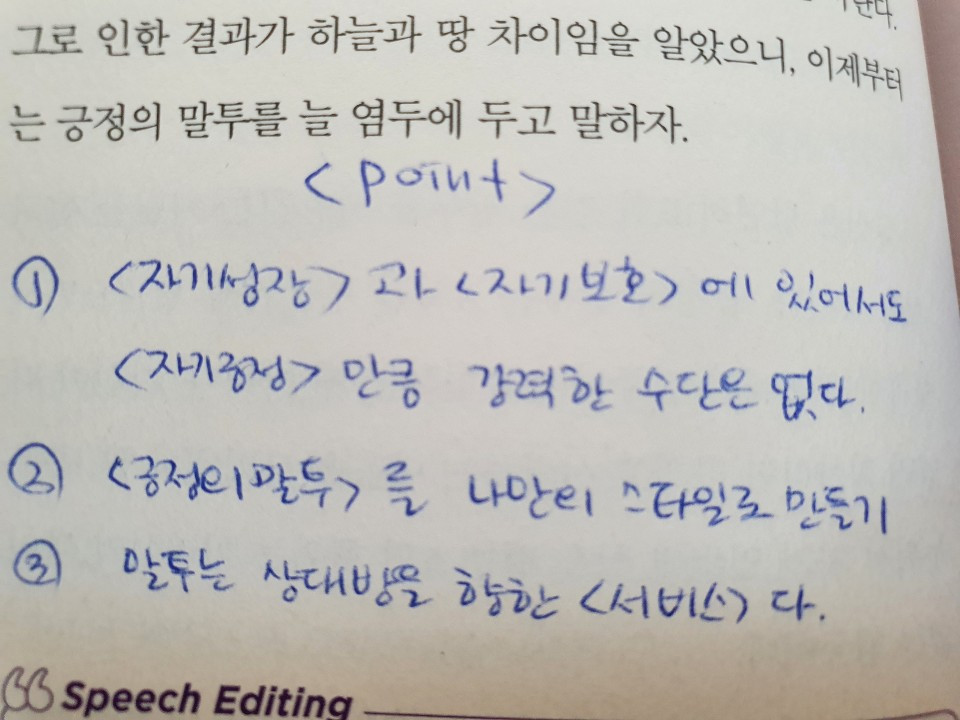 난다.
그로 인한 결과가 하늘과 땅 차이임을 알았으니, 이제부터
는 긍정의 말투를 늘 염두에 두고 말하자.
<point>
① <자기성장> 과 <자기보호> 에 있어서도
<자기긍정> 만큼 강력한 수단은 없다.
② <긍정의 말투> 를 나만의 스타일로 만들기
③ 말투는 상대방을 향한 <서비스> 다.
Speech Editing